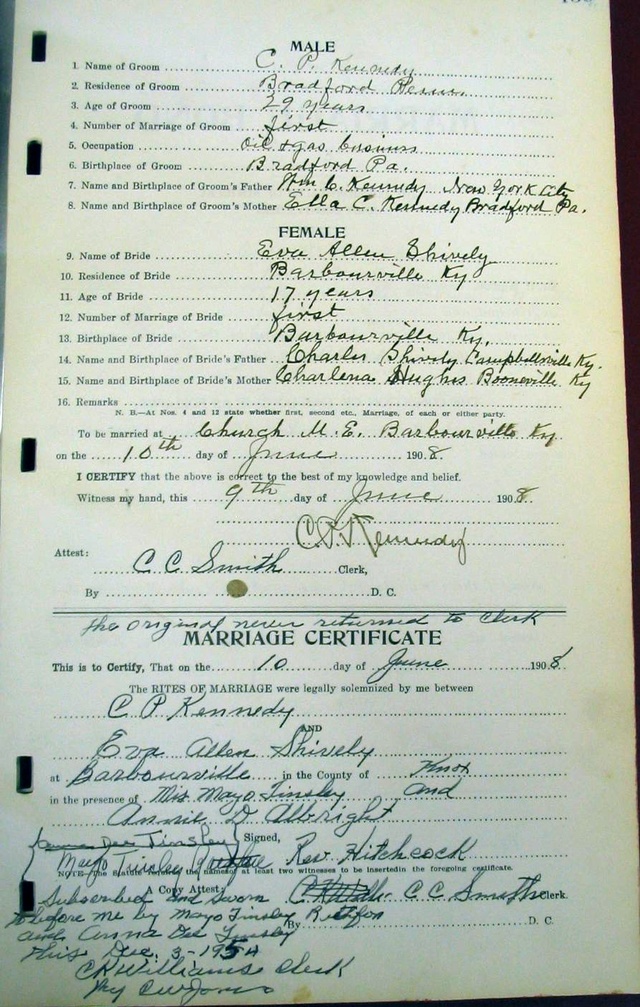 MALE
1. Name of Groom C. P. Kennedy
2. Residence of Groom Bradford Penn.
3. Age of Groom 29 years
4. Number of Marriage of Groom first
5. Occupation oil & gas business
6. Birthplace of Groom Bradford Pa.
7. Name and Birthplace of Groom's Father Wm C. Kennedy New York City
8. Name and Birthplace of Groom's Mother Ella C. Kennedy Bradford Pa.
FEMALE
9. Name of Bride Eva Allen Shively
10. Residence of Bride Barbourville Ky
11. Age of Bride 17 years
12. Number of Marriage of Bride first
13. Birthplace of Bride Barbourville Ky.
14. Name and Birthplace of Bride's Father Charles Shively Campbellsville Ky.
15. Name and Birthplace of Bride's Mother Charlena Hughes Booneville Ky
16. Remarks
N. B.—At Nos. 4 and 12 state whether first, second etc., Marriage, of each or either party.
To be married at Church M. E. Barbourville Ky
on the 10th day of June 1908
I CERTIFY that the above is correct to the best of my knowledge and belief.
Witness my hand, this 9th day of June 1908
C. P. Kennedy
Attest:
C C Smith Clerk,
By D. C.
the original never returned to Clerk
MARRIAGE CERTIFICATE
This is to Certify, That on the 10 day of June 1908
The RITES OF MARRIAGE were legally solemnized by me between
C P Kennedy
AND
Eva Allen Shively
at Barbourville in the County of Knox
in the presence of Mis Mayo Tinsley and
Annie D Albright
Anna Dee Tinsley Signed,
Mayo Tinsley Rev Hitchcock
NOTE—The Statute requires the names of at least two witnesses to be inserted in the foregoing certificate.
A Copy Attest: C C Smith Clerk.
Subscribed and Sworn
to before me by Mayo Tinsley By D. C.
and Anna Dee Tinsley
this Dec. 3-1954
CK Williams Clerk
By CW Jones